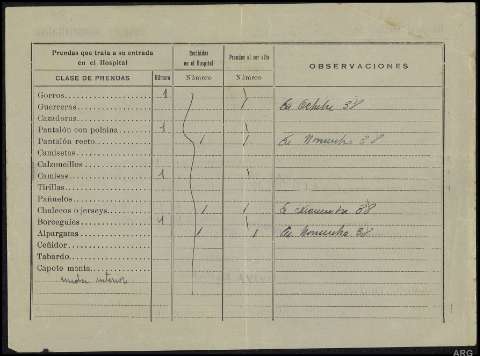 Prendas que traía a su entrada en el Hospital
Recibidas en el Hospital
Prendas al ser alta
OBSERVACIONES
CLASE DE PRENDAS
Número
Número
Número
Gorros 1
Guerreras En Octubre 38
Cazadoras
Pantalón con polaina 1
Pantalón recto En Noviembre 38
Camisetas
Calzoncillos
Camisas 1
Tirillas
Pañuelos
Chalecos o jerseys 38
Borceguíes 1
Alpargatas En Noviembre 38
Ceñidor
Tabardo
Capote manta
interior
ARG